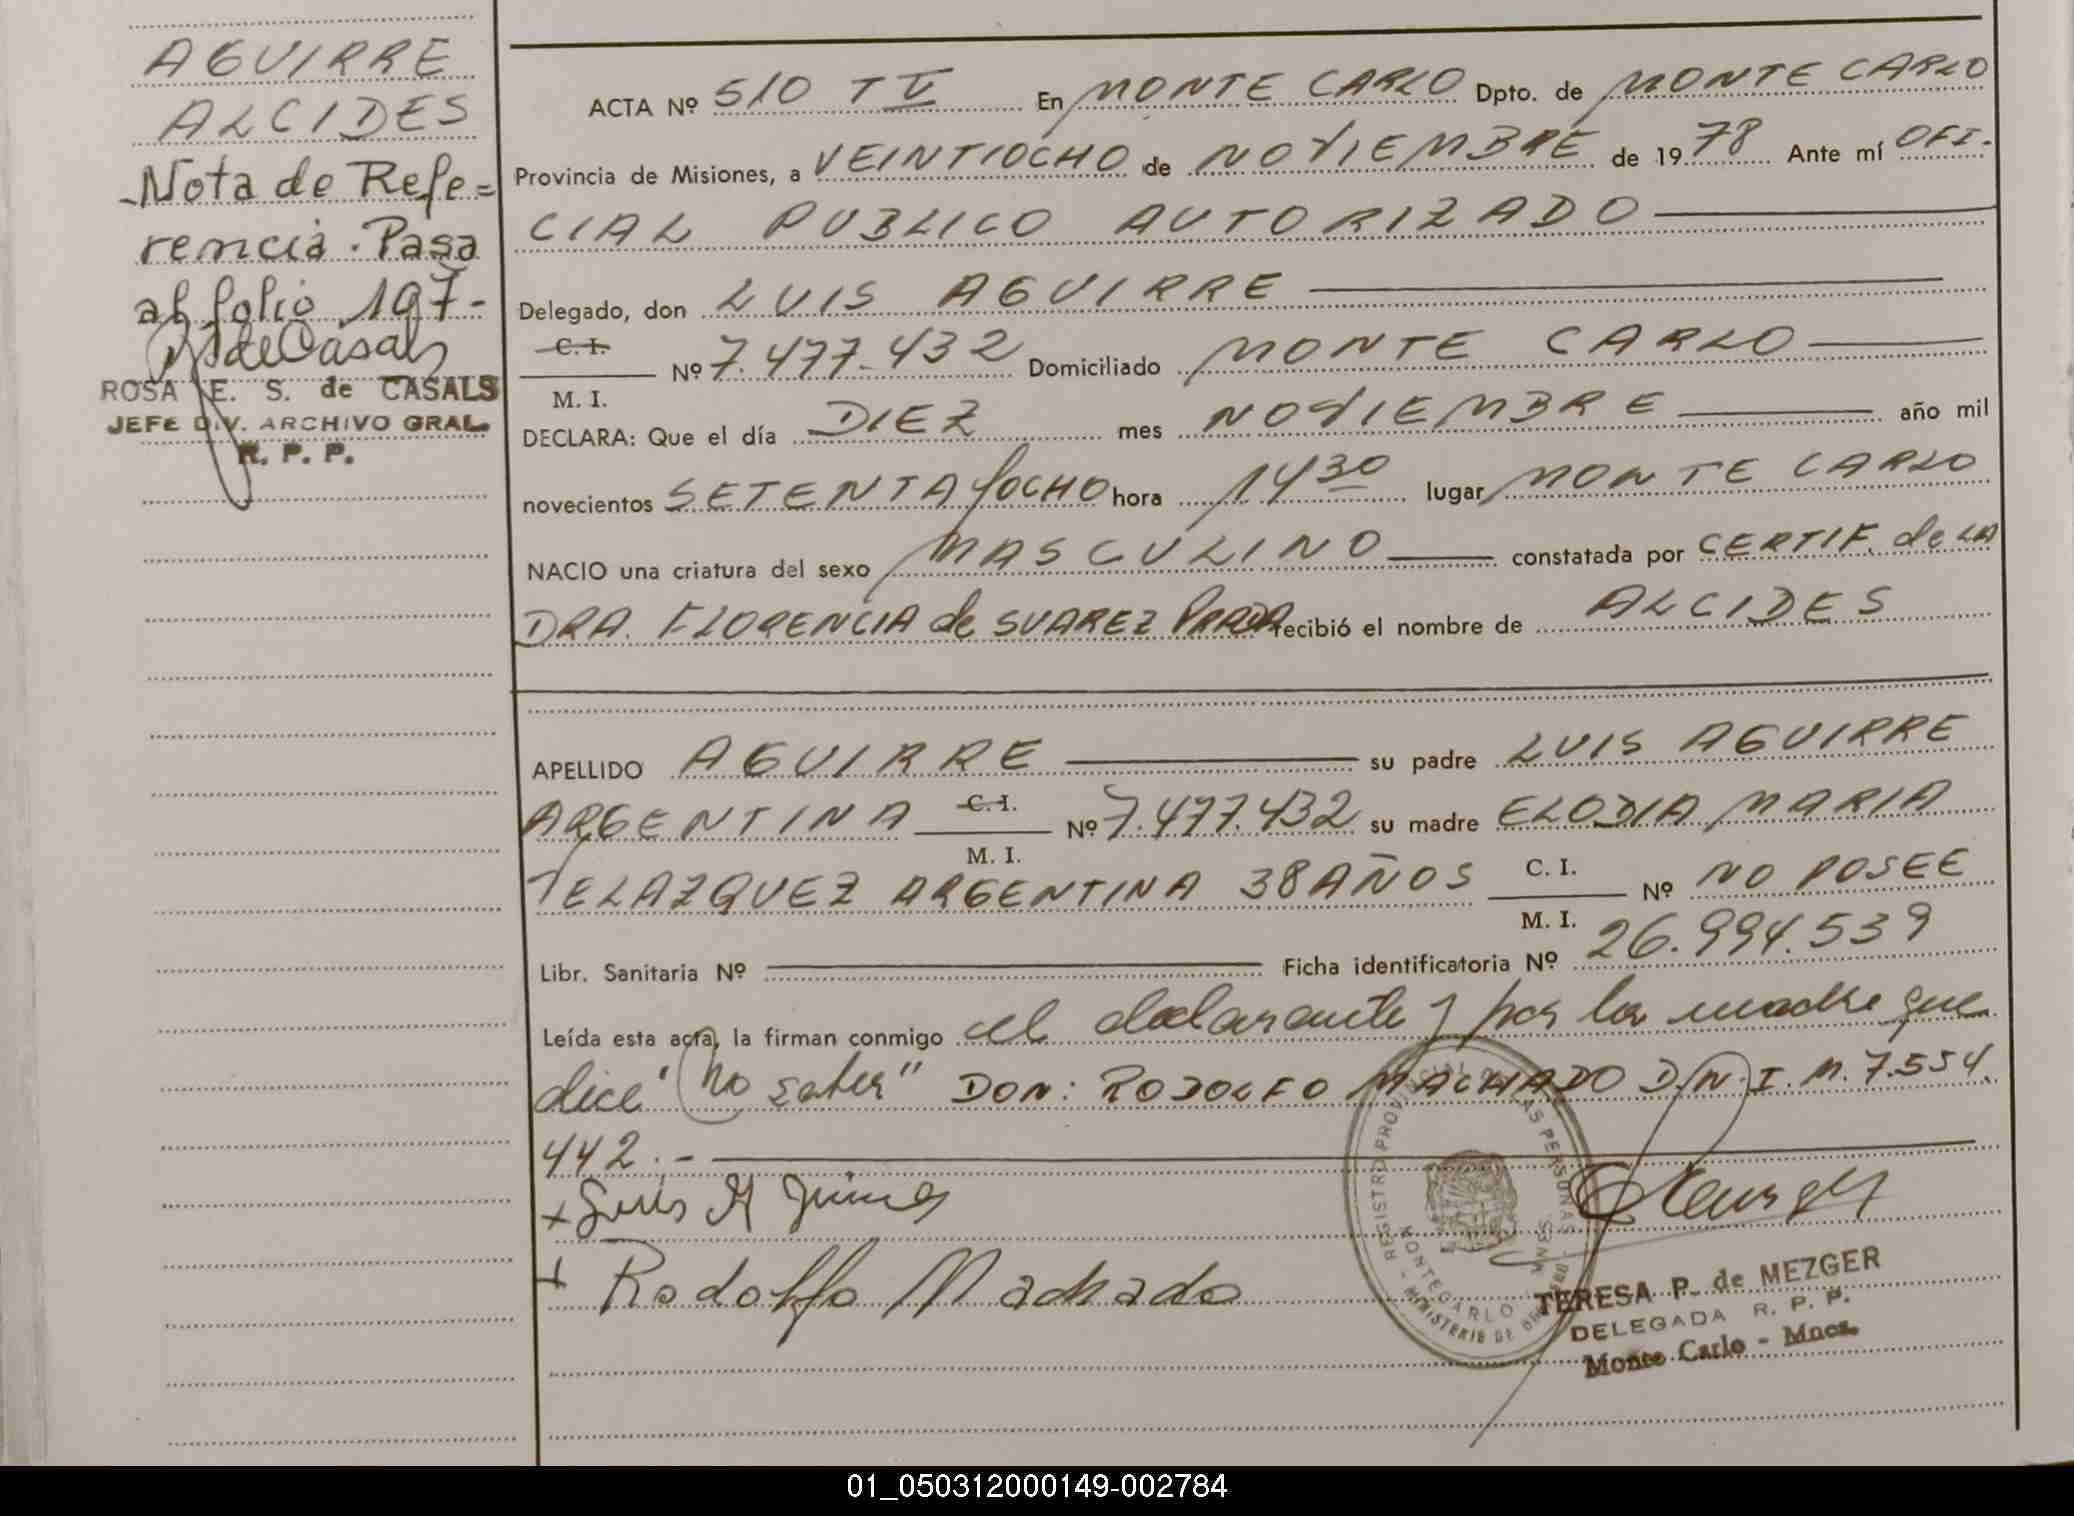 AGUIRRE
ALCIDES
-Nota de Refe=
rencia. Pasa
al folio 197-
ROSA E. S. de CASALS
JEFE DIV. ARCHIVO GRAL.
R. P. P.
ACTA Nº 510 T V En MONTE CARLO Dpto. de MONTE CARLO
Provincia de Misiones, a VEINTIOCHO de NOVIEMBRE de 1978 Ante mí OFI-
CIAL PUBLICO AUTORIZADO
Delegado, don LUIS AGUIRRE
C. I.
Nº 7.477.432 Domiciliado MONTE CARLO
M. I.
DECLARA: Que el día DIEZ mes NOVIEMBRE año mil
novecientos SETENTA Y OCHO hora 14 30 lugar MONTE CARLO
NACIO una criatura del sexo MASCULINO constatada por CERTIF. de LA
DRA. FLORENCIA de SUAREZ recibió el nombre de ALCIDES
APELLIDO AGUIRRE su padre LUIS AGUIRRE
ARGENTINA C. I. Nº 7.477.432 su madre ELODIA MARIA
M. I.
VELAZQUEZ ARGENTINA 38 AÑOS C. I. Nº NO POSEE
M. I.
Libr. Sanitaria Nº Ficha identificatoria Nº 26.994.539
Leída esta acta, la firman conmigo el declarante y por la madre que
dice "no saber" DON: RODOLFO MACHADO D.N.I. M. 7.554.
442.-
+ Rodolfo Machado
REGISTRO PROVINCIAL DE LAS PERSONAS
MONTECARLO
MNES.
MINISTERIO DE
TERESA P. de MEZGER
DELEGADA R. P. P.
Monte Carlo - Mnes.
01_050312000149-002784